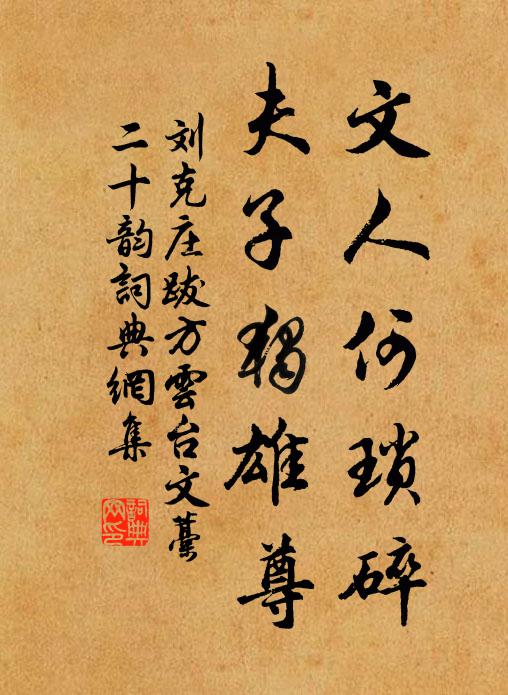 文人何瑣碎
夫子獨雄尊
刘克庄跋方雲台文藁
二十韵詞典網集
詞典网印